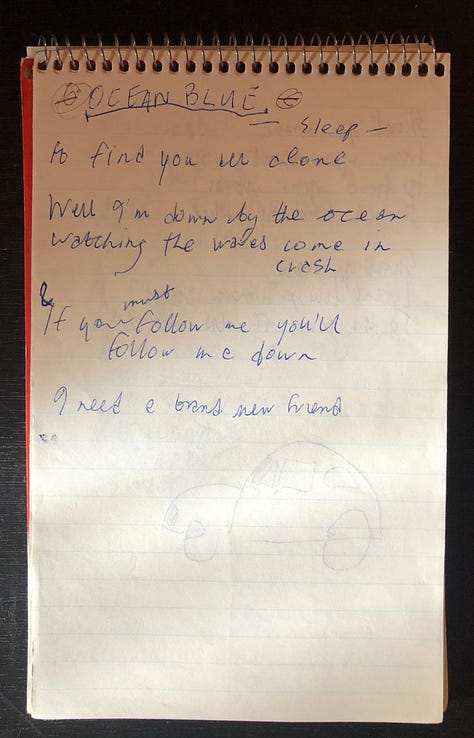 OCEAN BLUE
Sleep -
to find you all alone
Well I'm down by the ocean
watching the waves come in
crash
must
If you follow me you'll
follow me down
I need a brand new friend